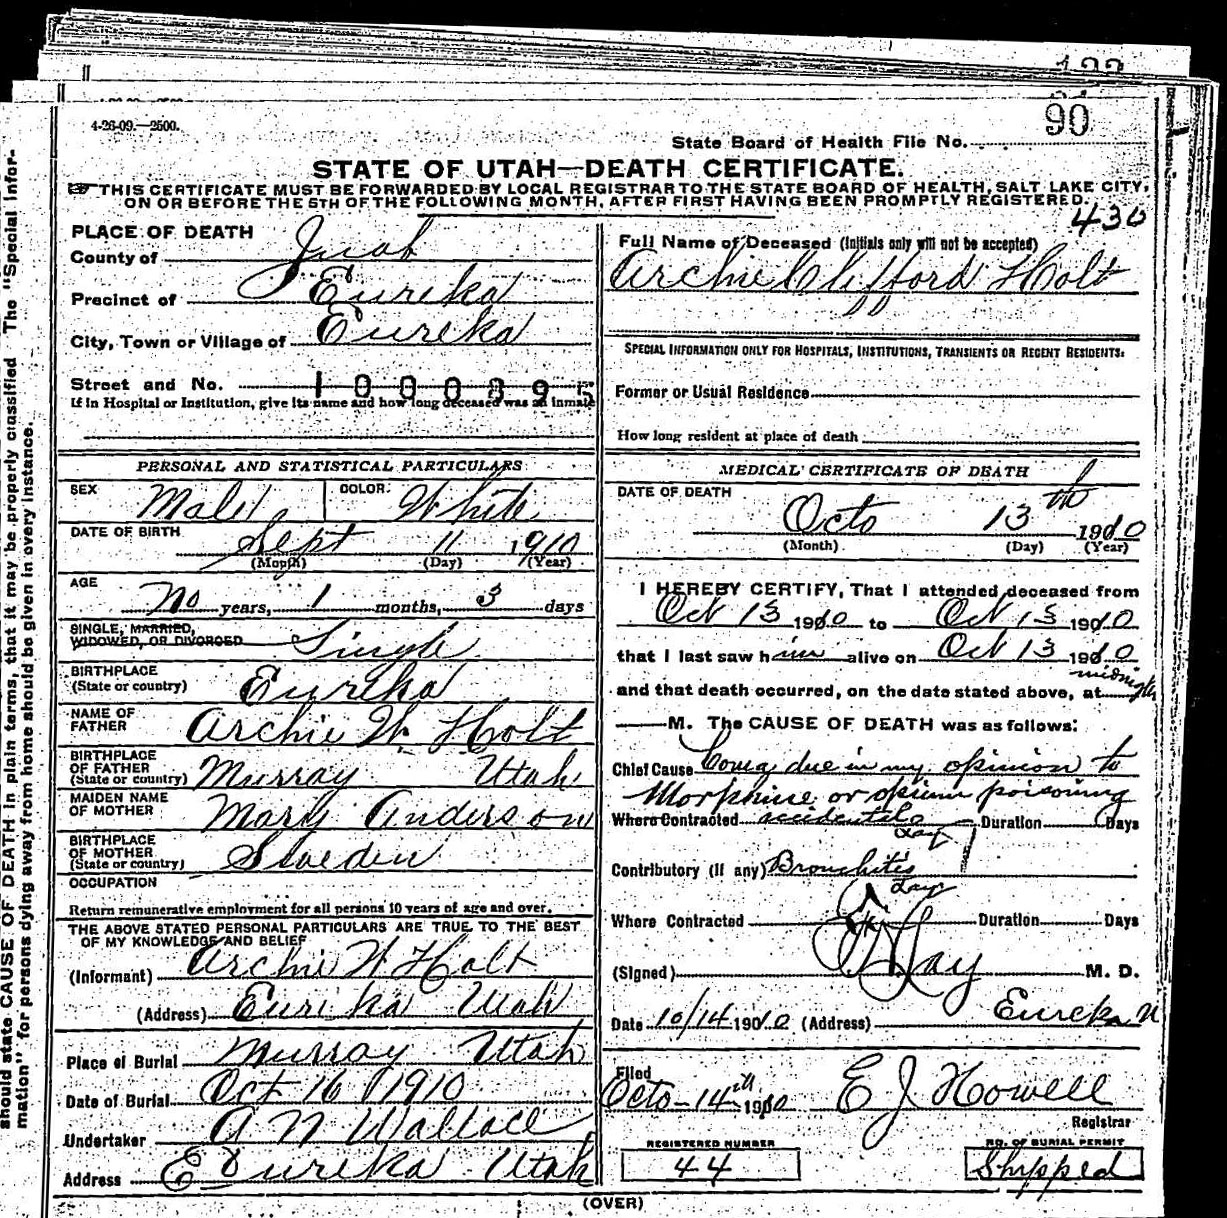 4-26-09.—2500.
90
State Board of Health File No.
STATE OF UTAH—DEATH CERTIFICATE.
THIS CERTIFICATE MUST BE FORWARDED BY LOCAL REGISTRAR TO THE STATE BOARD OF HEALTH, SALT LAKE CITY,
ON OR BEFORE THE 5TH OF THE FOLLOWING MONTH, AFTER FIRST HAVING BEEN PROMPTLY REGISTERED.
430
PLACE OF DEATH
County of Juab
Precinct of Eureka
City, Town or Village of Eureka
Street and No. 1000895
If in Hospital or Institution, give its name and how long deceased was an inmate
PERSONAL AND STATISTICAL PARTICULARS
SEX Male COLOR: White
DATE OF BIRTH Sept 11 1910
(Month) (Day) (Year)
AGE
No years, 1 months, 3 days
SINGLE, MARRIED,
WIDOWED, OR DIVORCED Single
BIRTHPLACE
(State or country) Eureka
NAME OF
FATHER Archie W. Holt
BIRTHPLACE
OF FATHER
(State or country) Murray Utah
MAIDEN NAME
OF MOTHER Mary Anderson
BIRTHPLACE
OF MOTHER
(State or country) Sweden
OCCUPATION
Return remunerative employment for all persons 10 years of age and over.
THE ABOVE STATED PERSONAL PARTICULARS ARE TRUE TO THE BEST
OF MY KNOWLEDGE AND BELIEF
(Informant) Archie W Holt
(Address) Eureka Utah
Place of Burial Murray Utah
Date of Burial Oct 16 1910
Undertaker A N Wallace
Address Eureka Utah
Full Name of Deceased (Initials only will not be accepted)
Archie Clifford Holt
SPECIAL INFORMATION ONLY FOR HOSPITALS, INSTITUTIONS, TRANSIENTS OR RECENT RESIDENTS:
Former or Usual Residence
How long resident at place of death
MEDICAL CERTIFICATE OF DEATH
DATE OF DEATH
Octo 13th 1910
(Month) (Day) (Year)
I HEREBY CERTIFY, That I attended deceased from
Oct 13 1910 to Oct 13 1910
that I last saw him alive on Oct 13 1910
and that death occurred, on the date stated above, at midnight
M. The CAUSE OF DEATH was as follows:
Chief Cause Coma due in my opinion to
Morphine or opium poisoning
Where Contracted accidental Duration Days
Contributory (if any) Bronchitis
Where Contracted Duration Days
(Signed) M. D.
Date 10/14 1910 (Address) Eureka U
Filed
Octo-14th 1910 E J Howell
Registrar
REGISTERED NUMBER
44
NO. OF BURIAL PERMIT
Shipped
(OVER)
should state CAUSE OF DEATH in plain terms, that it may be properly classified The "Special Infor-
mation" for persons dying away from home should be given in every instance.